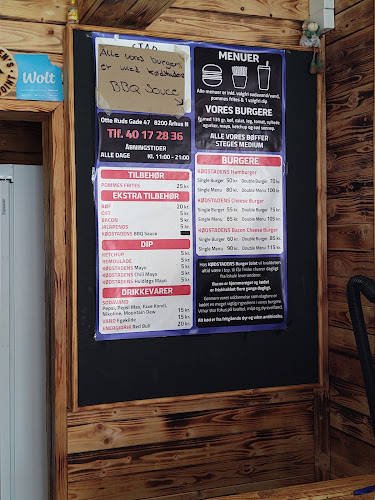 Wolt
Alle vores burgers
er med Kødstadens
BBQ Sauce
Otte Ruds Gade 47 8200 Århus N
Tlf. 40 17 28 36
ÅBNINGSTIDER
ALLE DAGE Kl. 11:00 - 21:00
TILBEHØR
POMMES FRITES 25 kr.
EKSTRA TILBEHØR
BØF 20 kr.
OST 5 kr.
BACON 5 kr.
JALAPENOS 5 kr.
KØDSTADENS BBQ Sauce
DIP
KETCHUP 5 kr.
REMOULADE 5 kr.
KØDSTADENS Mayo 5 kr.
KØDSTADENS Chili Mayo 5 kr.
KØDSTADENS Hvidløgs Mayo 5 kr.
DRIKKEVARER
SODAVAND 20 kr.
Pepsi, Pepsi Max, Faxe Kondi,
Nikoline, Mountain Dew
VAND Egekilde 15 kr.
ENERGIDRIK Red Bull 20 kr.
MENUER
Alle menuer er inkl. valgfri sodavand/vand,
pommes frites & 1 valgfri dip
VORES BURGERE
ALLE VORES BØFFER
STEGES MEDIUM
BURGERE
KØDSTADENS Humburger
Single Burger 50 kr. Double Burger 70 kr.
Single Menu 80 kr. Double Menu 100 kr.
KØDSTADENS Cheese Burger
Single Burger 55 kr. Double Burger 75 kr.
Single Menu 85 kr. Double Menu 105 kr.
KØDSTADENS Bacon Cheese Burger
Single Burger 60 kr. Double Burger 85 kr.
Single Menu 90 kr. Double Menu 115 kr.
Hos KØDSTADENS Burger Joint vil kvaliteten
altid være i top. Vi får friske råvarer dagligt
fra lokale leverandører.
Buns er hjemmelavet og kødet
er friskhakket flere gange dagligt.